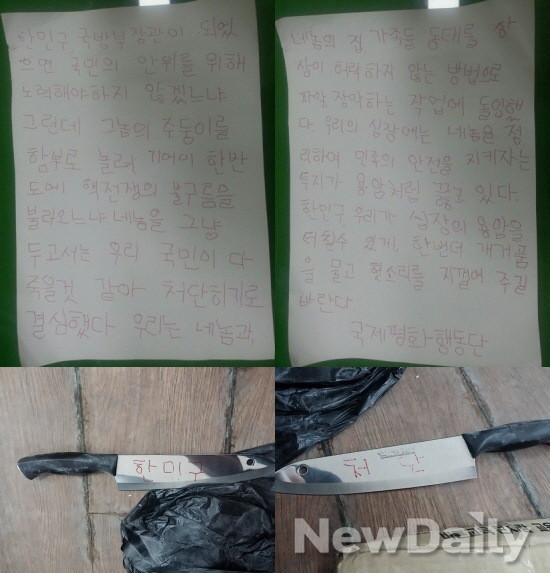 한민구 국방부장관이 되었
으면 국민의 안위를 위해
노력해야하지 않겠느냐
그런데 그놈의 주둥이를
함부로 놀려 기어이 한반
도에 핵전쟁의 불구름을
불러오느냐 네놈을 그냥
두고서는 우리 국민이 다
죽을것 같아 처단하기로
결심했다 우리는 네놈과,
네놈의 집 가족들 동태를 상
상이 허락하지 않는 방법으로
파악 장악하는 작업에 돌입했
다. 우리의 심장에는 네놈을 정
리하여 민족의 안전을 지키자는
투지가 용암처럼 끓고 있다.
한민구, 우리가 심장의 용암을
터칠수 있게, 한번더 개거품
을 물고 헛소리를 지껄여 주길
바란다
국제평화행동단
한민구
NewDaily